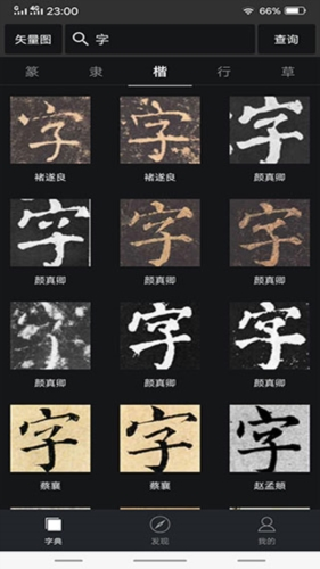 23:00 66%
矢量图 字 查询
篆 隶 楷 行 草
字 字 字
褚遂良 褚遂良 颜真卿
字 字 字
颜真卿 颜真卿 颜真卿
字 字 字
颜真卿 颜真卿 颜真卿
字 字 字
蔡襄 蔡襄 赵孟頫
字典 发现 我的